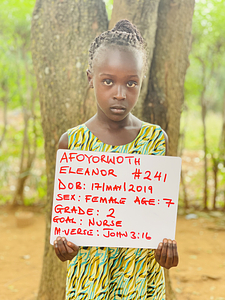 AFOYORWOTH
ELEANOR #241
DOB: 17/MAY/2019
SEX: FEMALE AGE: 7
GRADE: 2
GOAL: NURSE
M-VERSE: JOHN 3:16